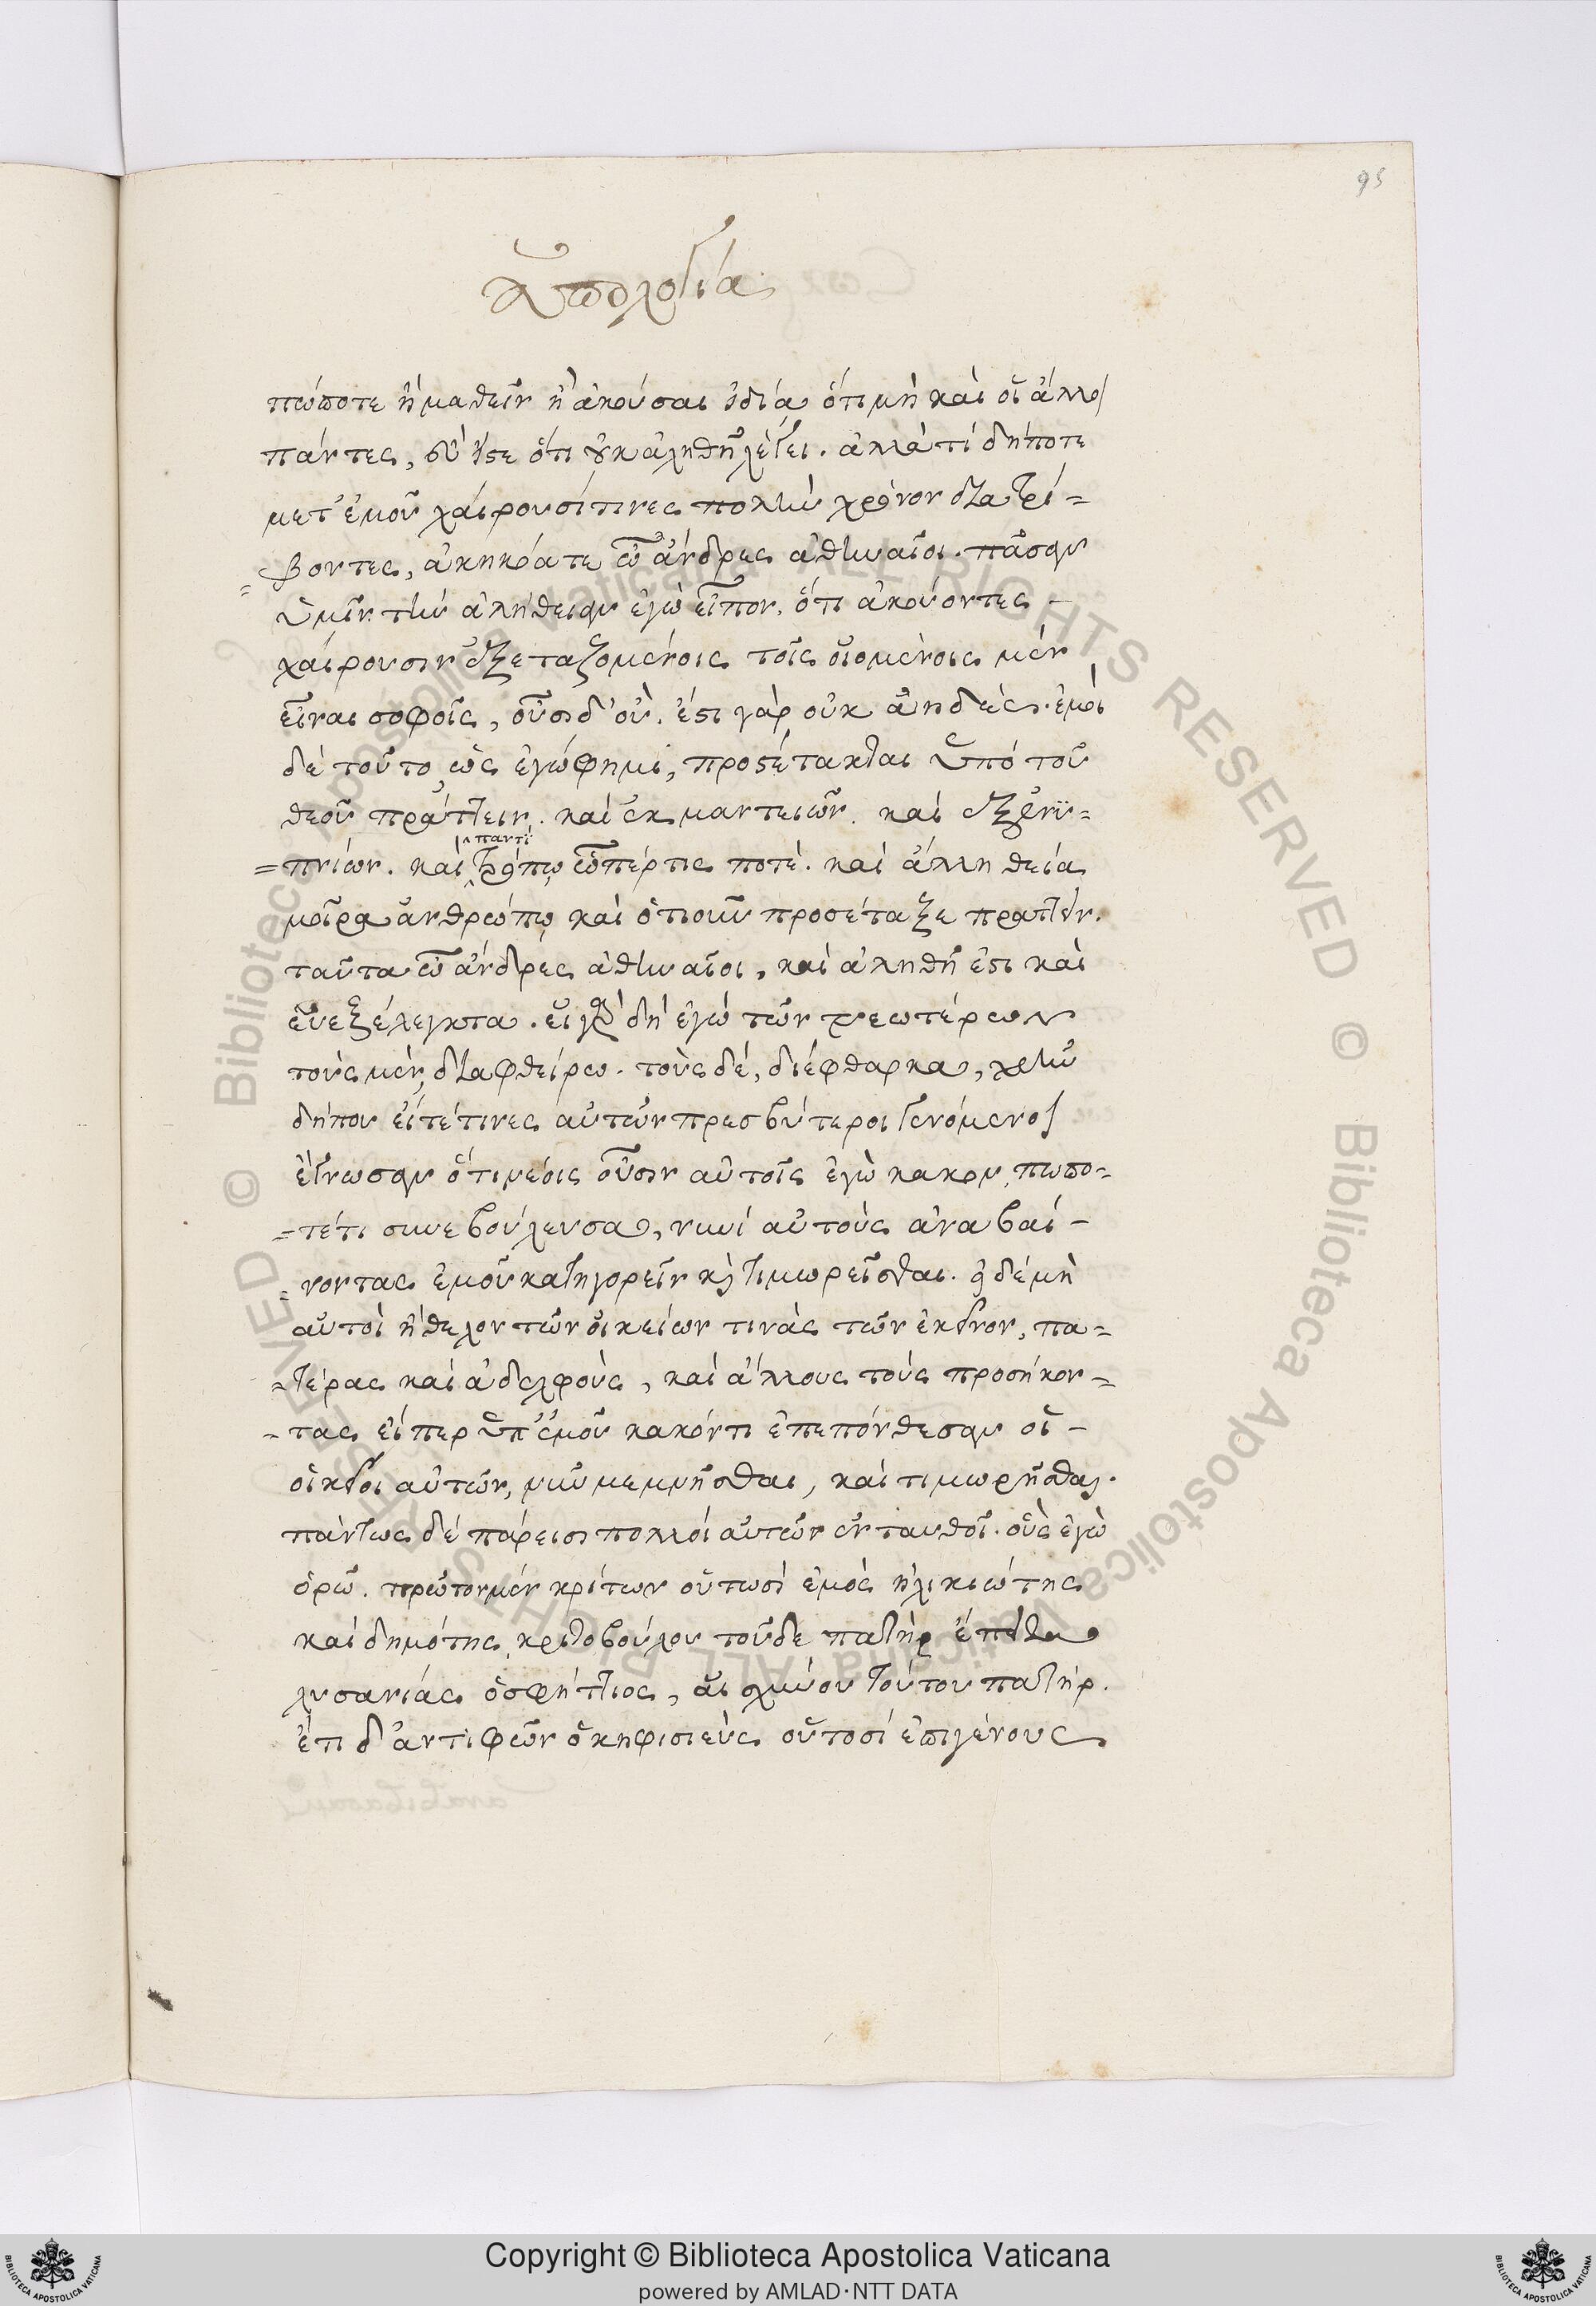 95
ἀπολογία
πώποτε ἢ μαθεῖν ἢ ἀκοῦσαι ἰδία ὅτι μὴ καὶ οἱ ἄλλοι
πάντες, εὖ ἴστε ὅτι οὐκ ἀληθῆ λέγει. ἀλλὰ τί δήποτε
μετ' ἐμοῦ χαίρουσί τινες πολὺν χρόνον διατρί-
βοντες, ἀκηκόατε ὦ ἄνδρες ἀθηναῖοι. πᾶσαν
ὑμῖν τὴν ἀλήθειαν ἐγὼ εἶπον. ὅτι ἀκούοντες
χαίρουσιν ἐξεταζομένοις τοῖς οἰομένοις μὲν
εἶναι σοφοῖς, οὖσι δ' οὔ. ἔστι γὰρ οὐκ ἀηδές. ἐμοὶ
δὲ τοῦτο, ὡς ἐγώ φημι, προστέτακται ὑπὸ τοῦ
θεοῦ πράττειν. καὶ ἐκ μαντειῶν. καὶ ἐξ ἐνυ-
παντὶ
=πνίων. καὶ τρόπῳ ὧπέρ τις ποτὲ. καὶ ἄλλη θεία
μοῖρα ἀνθρώπῳ καὶ ὁτιοῦν προσέταξε πράττειν.
ταῦτα ὦ ἄνδρες ἀθηναῖοι, καὶ ἀληθῆ ἐστι καὶ
εὐεξέλεγκτα. εἰ γὰρ δὴ ἐγὼ τῶν νεωτέρων
τοὺς μὲν, διαφθείρω. τοὺς δέ, διέφθαρκα, χρῆν
δήπου εἴτέ τινες αὐτῶν πρεσβύτεροι γενόμενοι
ἔγνωσαν ὅτι νέοις οὖσιν αὐτοῖς ἐγὼ κακὸν πωπο-
=τέ τι συνεβούλευσα, νυνὶ αὐτοὺς ἀναβαί-
=νοντας ἐμοῦ κατηγορεῖν καὶ τιμωρεῖσθαι. εἰ δὲ μὴ
αὐτοὶ ἤθελον τῶν οἰκείων τινὰς τῶν ἐκείνον, πα=
=τέρας καὶ ἀδελφοὺς, καὶ ἄλλους τοὺς προσήκον=
-τας εἴπερ ὑπ' ἐμοῦ κακόν τι ἐπεπόνθεσαν οἱ -
οἰκεῖοι αὐτῶν, νῦν μεμνῆσθαι, καὶ τιμωρῆσθαι.
πάντως δὲ πάρεισι πολλοὶ αὐτῶν ἐνταυθοῖ. οὓς ἐγὼ
ὁρῶ. πρῶτον μὲν κρίτων οὑτωσὶ ἐμὸς ἡλικιώτης
καὶ δημότης, κριτοβούλου τοῦδε πατὴρ ἔπειτα
λυσανίας ὁ σφήττιος, αἰσχίνου τούτου πατήρ.
ἔτι δ' ἀντιφῶν ὁ κηφισιεὺς οὑτοσὶ ἐπιγένους
Copyright © Biblioteca Apostolica Vaticana
powered by AMLAD·NTT DATA